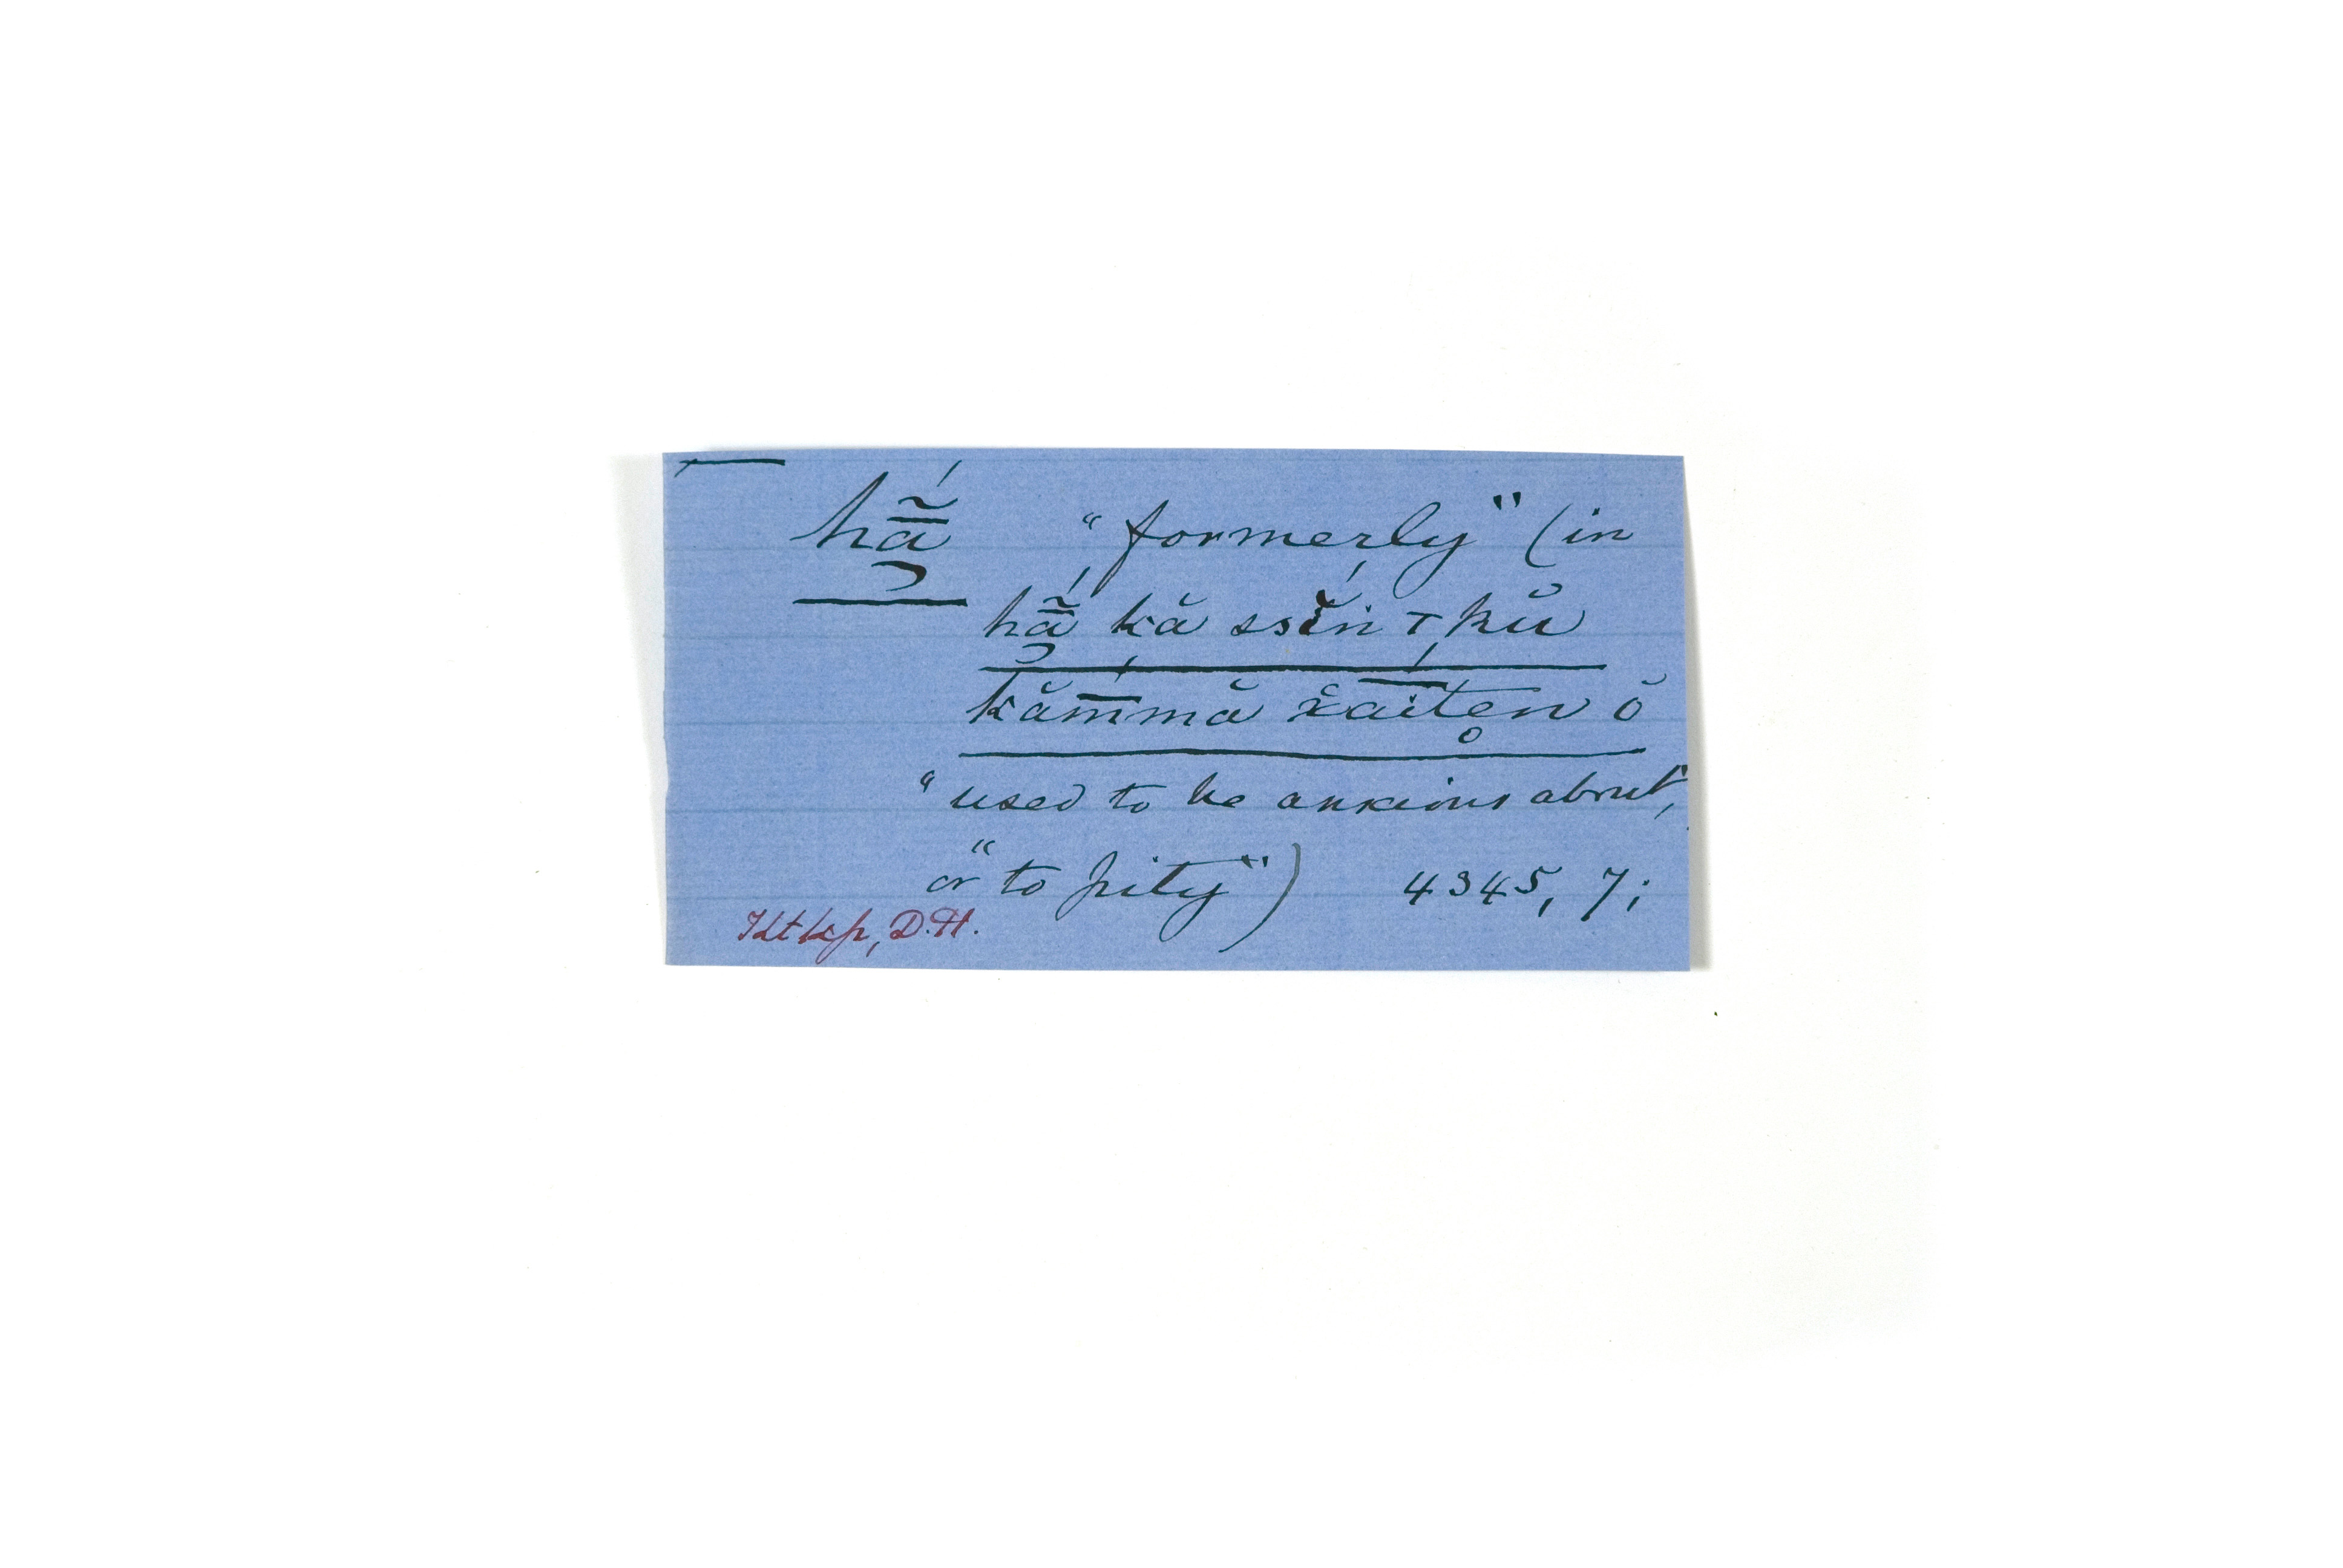 hā̃́ "formerly" (in
hā̃́ kă ssĭ́n ⊤ kŭ
kăm̄́mă x̆aīten ŏ
"used to be anxious about",
or "to pity") 4345, 7;
Ktkp, D.H.